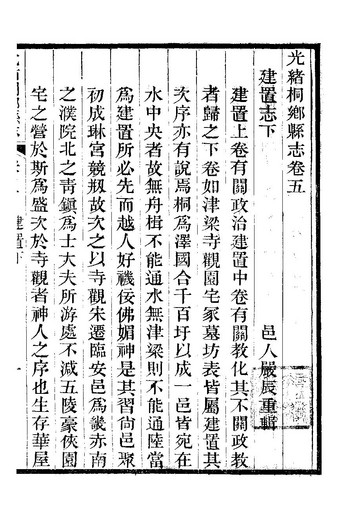 光緒桐鄉縣志卷五
邑人嚴辰重輯
建置志下
建置上卷有關政治建置中卷有關教化其不關政教
者歸之下卷如津梁寺觀園宅冢墓坊表皆屬建置其
次序亦有說焉桐爲澤國合千百圩以成一邑皆宛在
水中央者故無舟楫不能通水無津梁則不能通陸當
爲建置所必先而越人好禨佞佛媚神是其習尙邑聚
初成琳宮競刱故次之以寺觀宋遷臨安邑爲畿赤南
之濮院北之靑鎭爲士大夫所游處不減五陵豪俠園
宅之營於斯爲盛次於寺觀者神人之序也生存華屋
建置下
一